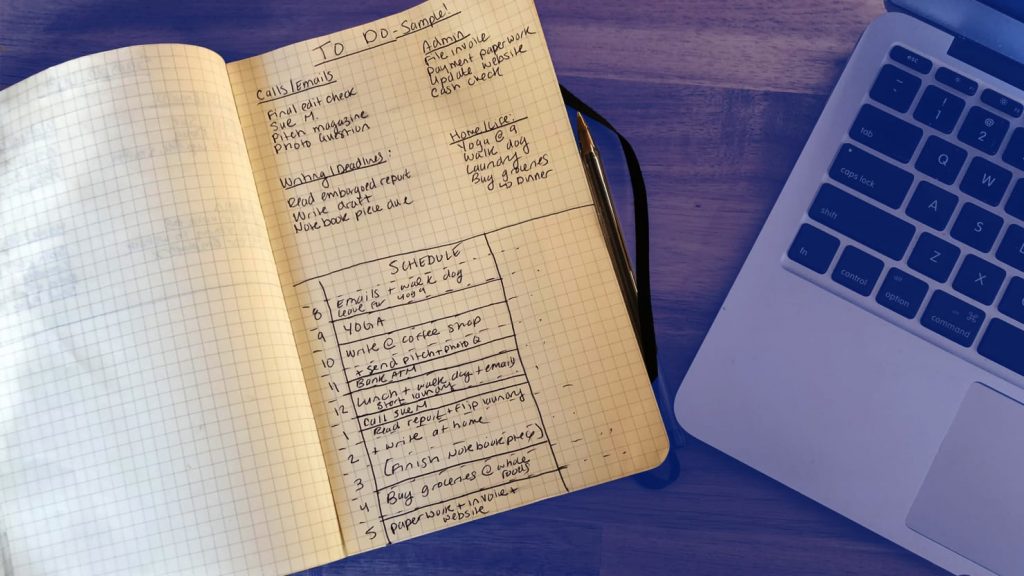 TO DO - Sample!
Calls/Emails
Final edit check
Sue M.
Pitch magazine
Photo question
Admin
File invoice
Payment paperwork
Update website
Cash check
Writing/Deadlines:
Read embargoed report
Write draft
Notebook piece due
Home/Live:
Yoga @ 9
Walk dog
Laundry
Buy groceries
↳ Dinner
SCHEDULE
8 Emails + walk dog
leave for yoga
9 YOGA
10 Write @ coffee shop
+ send pitch + photo Q
11 Bank ATM
Lunch + walk dog + email
12 Start laundry
Call Sue M
1 Read report + flip laundry
2 + write at home
3 (Finish Notebook piece)
4 Buy groceries @ whole
foods
5 paperwork + invoice +
website
esc
~
`
!
1
@
2
tab
Q
W
caps lock
A
S
shift
Z
X
fn
control
alt
option
⌘
command